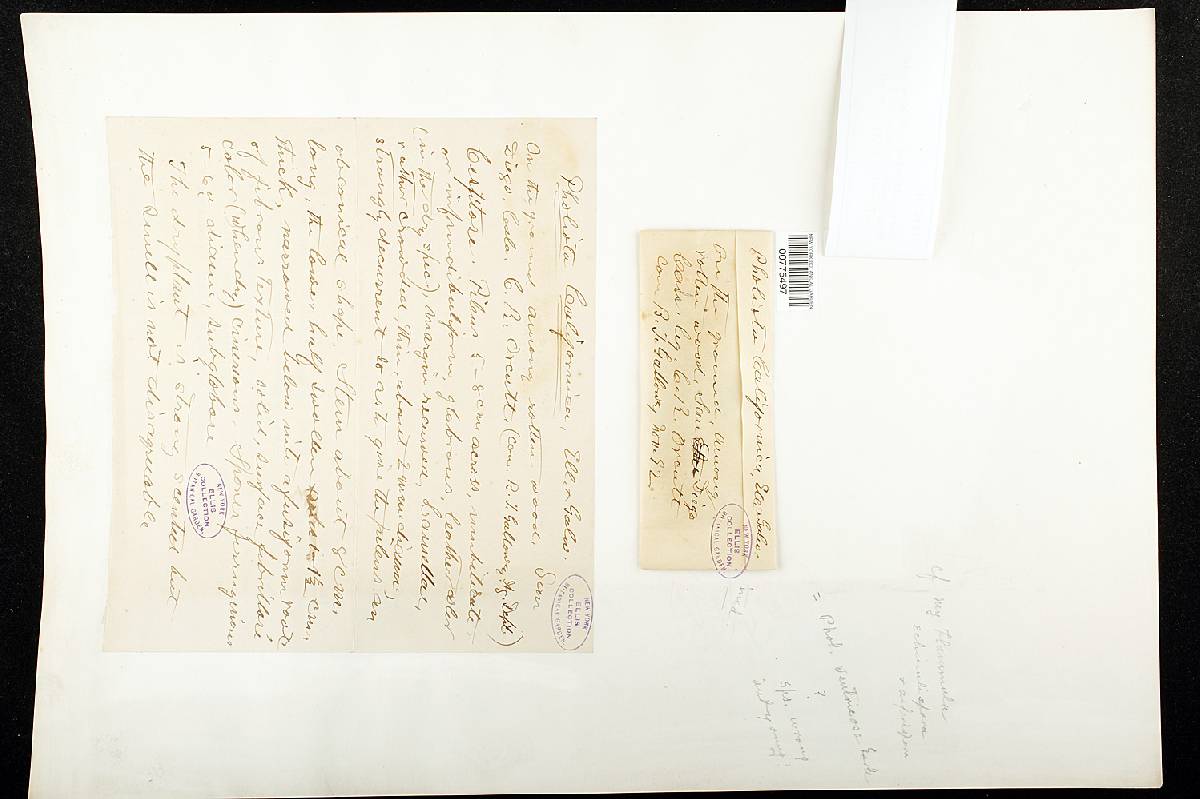 Pholiota Californica, Ell & Galw.
On the ground among rotten wood, San
Diego, Calif. C. R. Orcutt, (com. B. T. Galloway, Ag. Dept.)
Cespitose. Pileus 5-8 cm across, umbilicate
or infundibuliform, glabrous, leather color
(in the dry spec), margin recurved, Lamellae,
rather crowded, thin, about 2 mm. diam.,
strongly decurrent so as to give the pileus an
obconical shape. Stem about 8 cm.
long, the lower half swollen 1½ cm.
thick, narrowed below into a fusiform root
of fibrous texture, solid, surface fibrillose
color (when dry) cinereous. Spores ferruginous
5-6 diam, subglobose
The dry plant is strong scented but
the smell is not disagreeable
NEW YORK
ELLIS
COLLECTION
BOTANICAL GARDEN
NEW YORK
ELLIS
COLLECTION
BOTANICAL GARDEN
Pholiota Californica, Ell & Galw.
On the ground, among
rotten wood, San Diego
Calif. leg. C. R. Orcutt
com. B. T. Galloway,
NEW YORK
ELLIS
COLLECTION
BOTANICAL GARDEN
00775497
cf my Flammula
echinulispora
= Phol. ventricosa Earle
?
sps. wrong